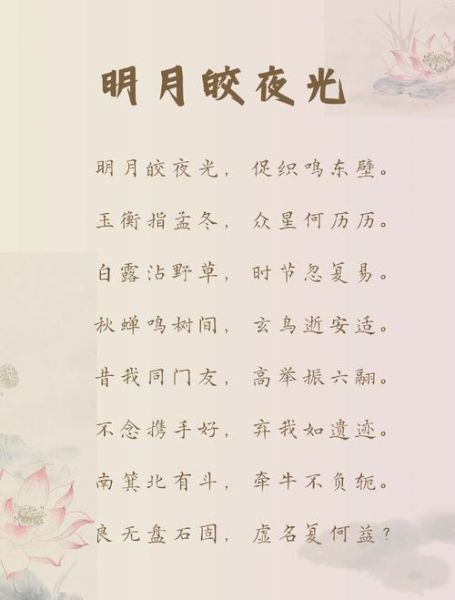 明月皎夜光
明月皎夜光，促织鸣东壁。
玉衡指孟冬，众星何历历。
白露沾野草，时节忽复易。
秋蝉鸣树间，玄鸟逝安适。
昔我同门友，高举振六翮。
不念携手好，弃我如遗迹。
南箕北有斗，牵牛不负轭。
良无盘石固，虚名复何益？